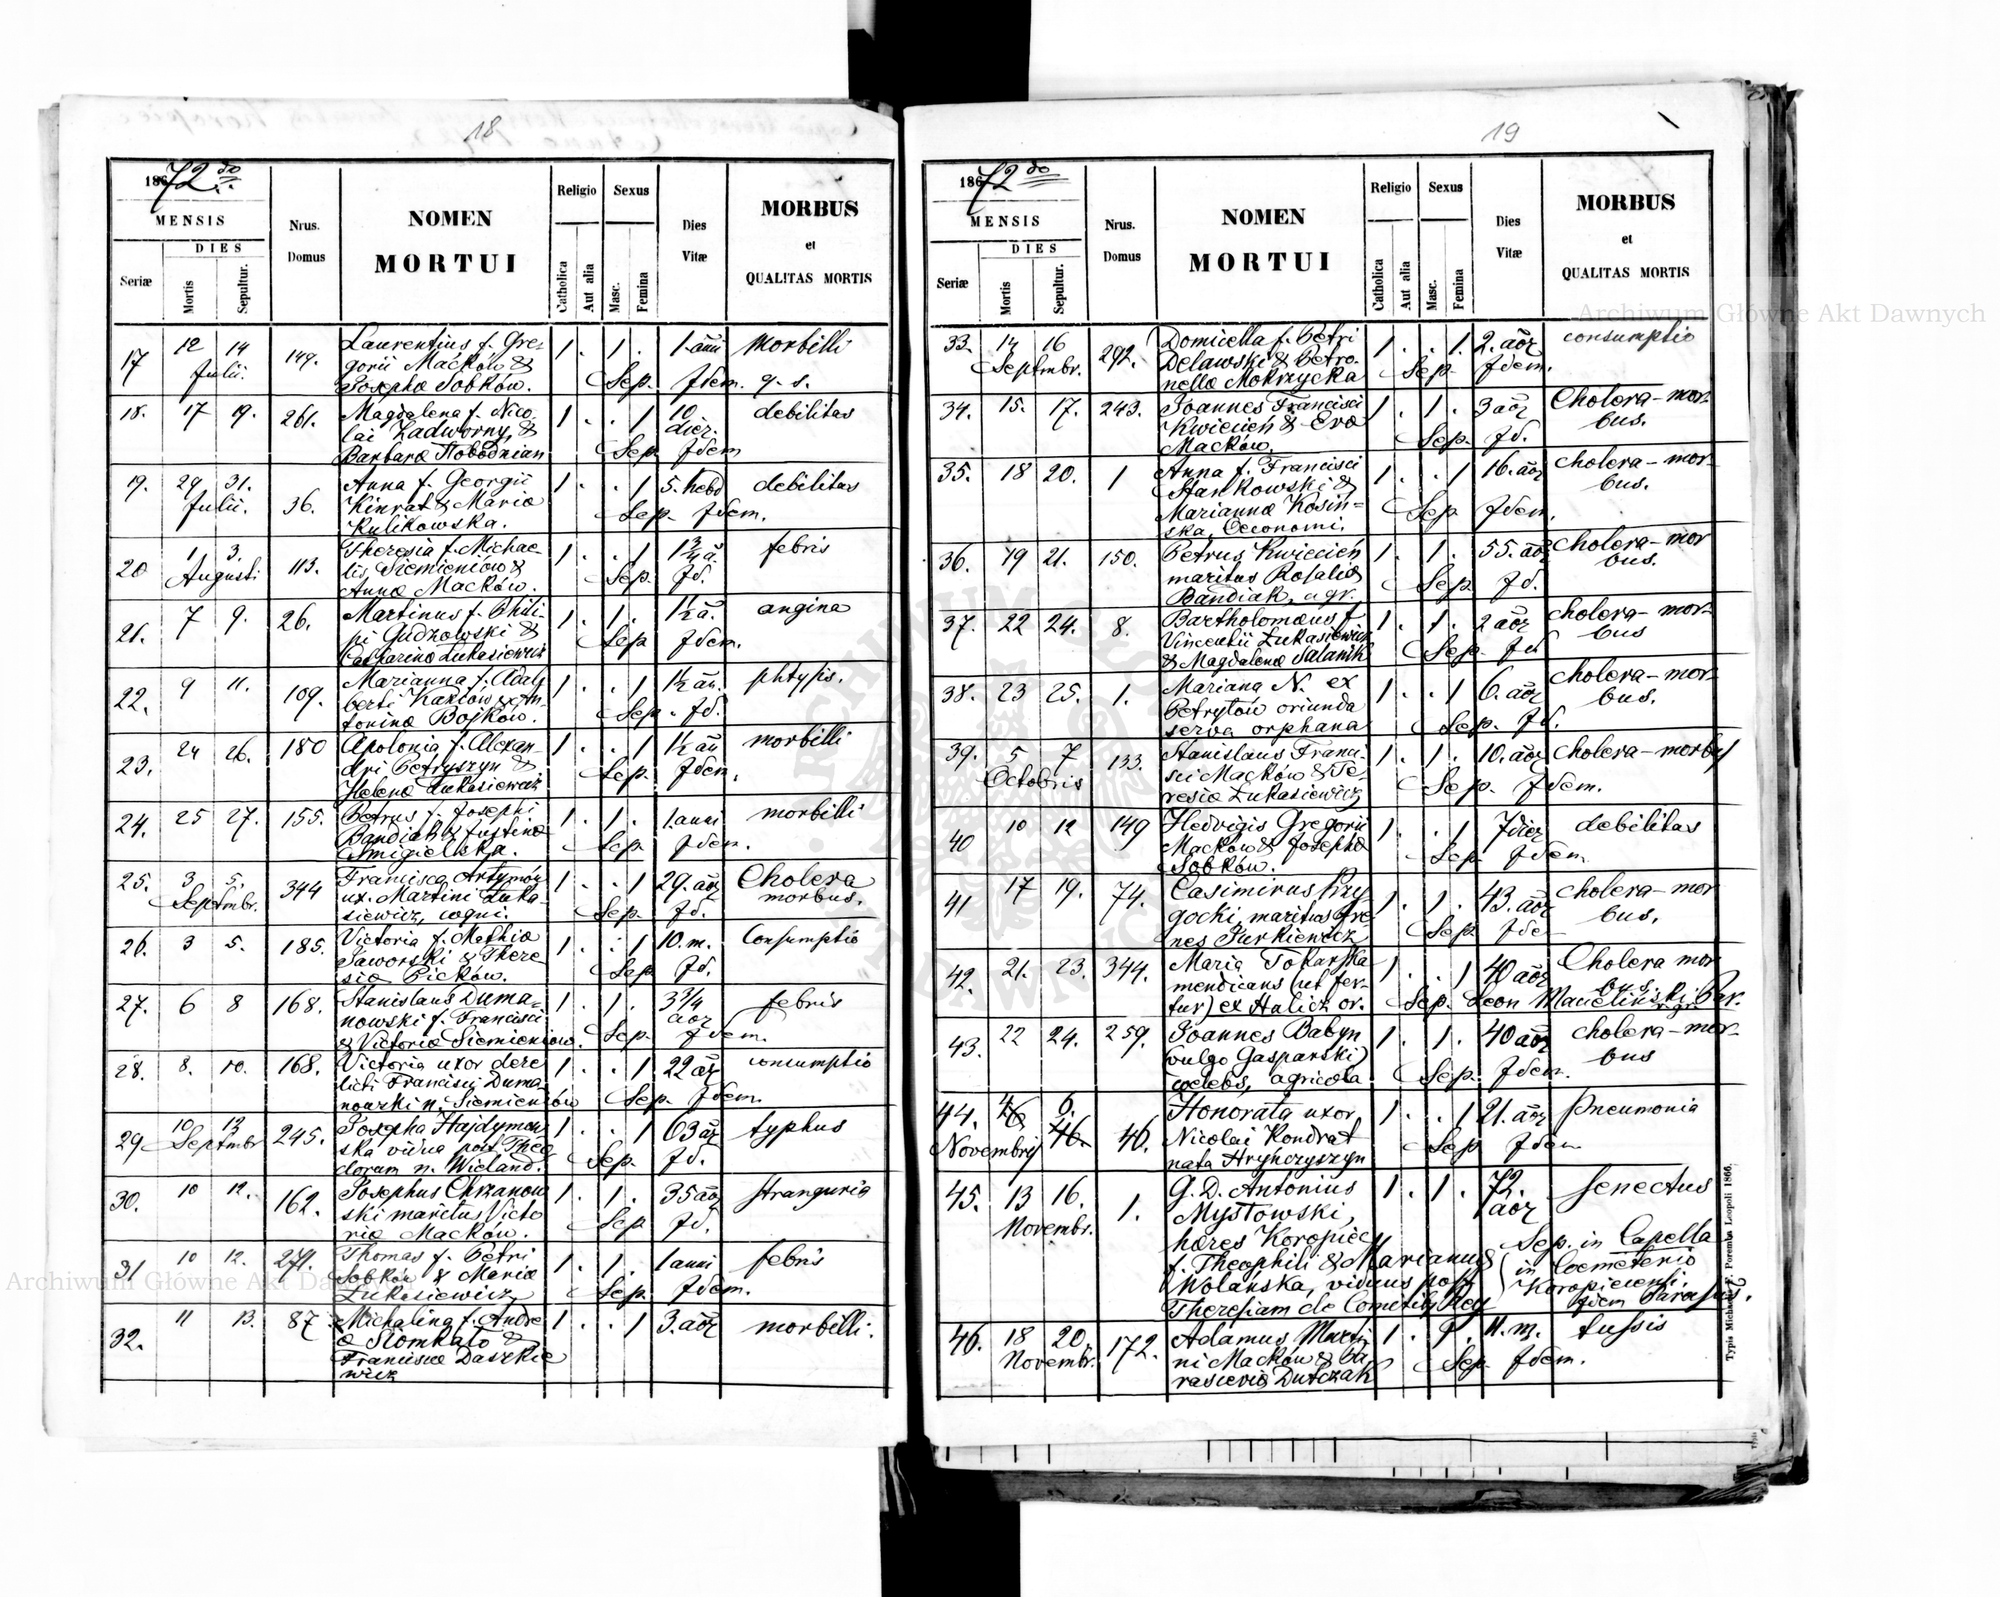 18
1872do
MENSIS
DIES
Seriæ
Mortis
Sepultur.
Nrus.
Domus
NOMEN
MORTUI
Religio
Catholica
Aut alia
Sexus
Masc.
Femina
Dies
Vitæ
MORBUS
et
QUALITAS MORTIS
17 12 14 149. Laurentius f. Gre- 1 . 1 . 1. anni morbilli
Julii. gorii Maćków &
Josephæ Sobków. Sep. Idem. q. s.
18. 17 19. 261. Magdalena f. Nico- 1 . . 1 10 debilitas
lai Zadworny, & dier.
Barbaræ Słobodnian Sep. Idem
19. 29 31. 36. Anna f. Georgii 1 . . 1 5. hebd debilitas
Julii. Kinrat & Mariæ
Kulikowska. Sep. Idem.
20 1 3. 113. Theresia f. Michae- 1 . . 1 febris
Augusti lis Siemieniow &
Annæ Maćków. Sep. Id.
21. 7 9. 26. Martinus f. Phili- 1 . 1 . 1½ a. angina
pi Gudzowski &
Catharinæ Łukasiewicz Sep Idem.
22. 9 11. 109. Marianna f. Adal 1 . . 1 1½ an. phtysis.
berti Karłów & An
toninæ Bojków. Sep. Id.
23. 24 26. 180 Apolonia f. Alexan- 1 . . 1 1½ an morbilli
dri Petryszyn &
Helenæ Łukasiewicz Sep. Idem.
24. 25 27. 155. Petrus f. Josephi 1 . 1 . 1. anni morbilli
Bandiak & Justinæ
Smigielska. Sep Idem.
25. 3. 5. 344 Francisca Artymów 1 . . 1 29. aor Cholera
Septmbr. ux. Martini Łuka- morbus.
siewicz, cogni. Sep. Id.
26. 3 5. 185. Victoria f. Mathiæ 1 . . 1 10. m. Consumptio
Jaworski & There
siæ Picków. Sep Id.
27. 6 8 168. Stanislaus Duma- 1 . 1 . 3¾ febris
nowski f. Francisci aor
& Victoriæ Siemieniow. Sep. Idem.
28. 8. 10. 168. Victoria uxor dere 1 . . 1 22 aor consumptio
licti Francisci Duma-
nowski n. Siemieniów Sep. Idem.
29 10 12 245. Josepha Hajdymow 1 . . 1 63 aor typhus
Septmbr ska vidua post Theo
dorum n. Wieland. Sep. Id.
30. 10 12. 162. Josephus Chrzanow 1 . 1 . 35 aor stranguria
ski maritus Victo
riæ Maćków. Sep Id.
31 10 12. 271. Thomas f. Petri 1 . 1 . 1 anni febris
Sobków & Mariæ
Łukasiewicz Sep. Idem.
32. 11 13. 87 Michalina f. Andre 1 . . 1 3. aor morbilli.
æ Słomkało &
Franciscæ Daszkie
wicz
19
1872do
MENSIS
DIES
Seriæ
Mortis
Sepultur.
Nrus.
Domus
NOMEN
MORTUI
Religio
Catholica
Aut alia
Sexus
Masc.
Femina
Dies
Vitæ
MORBUS
et
QUALITAS MORTIS
33. 14 16 292. Domicella f. Petri 1 . . 1. 2. aor consumptio
Septmbr. Delawski & Petro-
nellæ Mokrzycka Sep Idem.
34. 15. 17. 243. Joannes Francisci 1 . 1 . 3 aor Cholera-mor-
Kwiecień & Evæ bus.
Maćków. Sep. Id.
35. 18 20. 1 Anna f. Francisci 1 . . 1 16. aor Cholera-mor-
Stankowski & bus.
Mariannæ Kosin-
ska, Oeconomi. Sep Idem.
36. 19 21. 150. Petrus Kwiecień 1 . 1 . 55. aor Cholera-mor
maritus Rosaliæ bus.
Bandiak, agr. Sep Id.
37. 22 24. 8. Bartholomæus f. 1 . 1 . 2 aor Cholera-mor-
Vincentii Łukasiewicz bus
& Magdalenæ Salanik Sep. Id
38. 23 25. 1. Mariana N. ex 1 . . 1 6. aor Cholera-mor-
Petryłów oriunda bus.
serva orphana Sep. Id.
39. 5 7 133. Stanislaus Franci- 1 . 1 . 10. aor Cholera-morbus
Octobris sci Maćków & Te-
resiæ Łukasiewicz Sep. Idem.
40 10 12 149 Hedvigis Gregorii 1 . . 1 7 dier debilitas
Maćków & Josephæ
Sobków. Sep Idem.
41 17 19. 74. Casimirus Przy 1 . 1 . 43. aor cholera-mor
gocki, maritus Ire bus.
nes Jurkiewicz Sep Ide
42. 21. 23. 344. Maria Tokarska 1 . . 1 40 aor Cholera mor
mendicans (ut fer- bus.
tur) ex Halicz or. Sep. Leon Par.
43. 22 24. 259. Joannes Babyn 1 . 1 . 40 aor cholera-mor-
(vulgo Gasparski) bus
coelebs, agricola Sep. Idem.
44. 6. 46. Honorata uxor 1 . . 1 21. aor Pneumonia
Novembris Nicolai Kondrat
nata Hryńczyszyn Sep Idem
45. 13 16. 1. G. D. Antonius 1 . 1 . 72. senectus
Novembr. Mysłowski, aor
hæres Koropiec Sep. in Capella
f. Theophili & Mariannæ in Coemeterio
Wolańska, viduus post Koropiecensi.
Theresiam de Comitibus Rey Idem Parochus.
46. 18 20. 172. Adamus Marti 1 . 1 . 11. m. tussis
Novembr. ni Maćków & Pa
rasceviæ Dutczak Sep Idem.
Typis Michaelis F. Poremba Leopoli 1866.
Archiwum Główne Akt Dawnych
Archiwum Główne Akt Dawnych